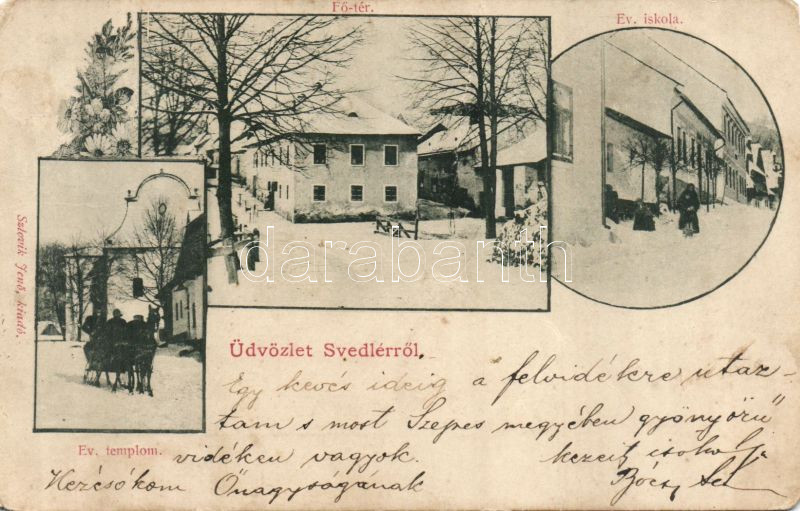 Fő-tér.
Ev. iskola.
darabanth
Szlovik Jenő, kiadó.
Üdvözlet Svedlérről.
Ev. templom.
Egy kevés ideig a felvidékre utaz-
tam s most Szepes megyében gyönyörü
vidéken vagyok. kezeit csokolja
Kezésókom Őnagyságának Bócz